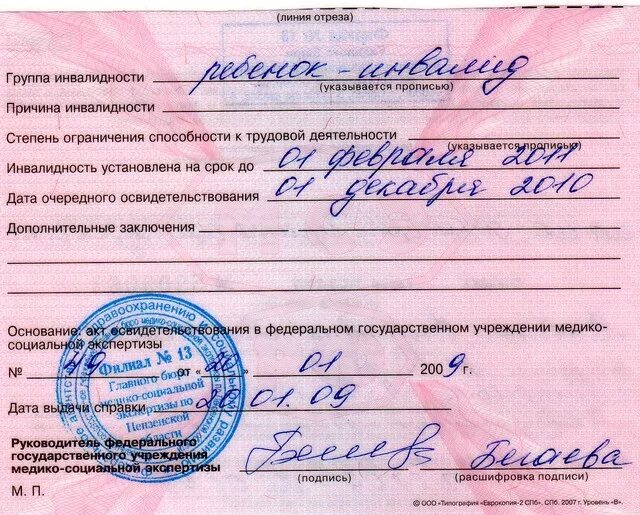 (линия отреза)
Группа инвалидности ребенок-инвалид
(указывается прописью)
Причина инвалидности
Степень ограничения способности к трудовой деятельности
(указывается прописью)
Инвалидность установлена на срок до 01 февраля 2011
Дата очередного освидетельствования 01 декабря 2010
Дополнительные заключения
Основание: акт освидетельствования в федеральном государственном учреждении медико-
социальной экспертизы
№ 49 от « 20 » 01 2009 г.
Дата выдачи справки 20.01.09
Филиал № 13
Главного бюро
медико-социальной
экспертизы по
Пензенской
области
Руководитель федерального
государственного учреждения
медико-социальной экспертизы
Бегаева
(подпись) (расшифровка подписи)
М. П.
© ООО «Типография «Еврокопия-2 СПб». СПб. 2007 г. Уровень «В».